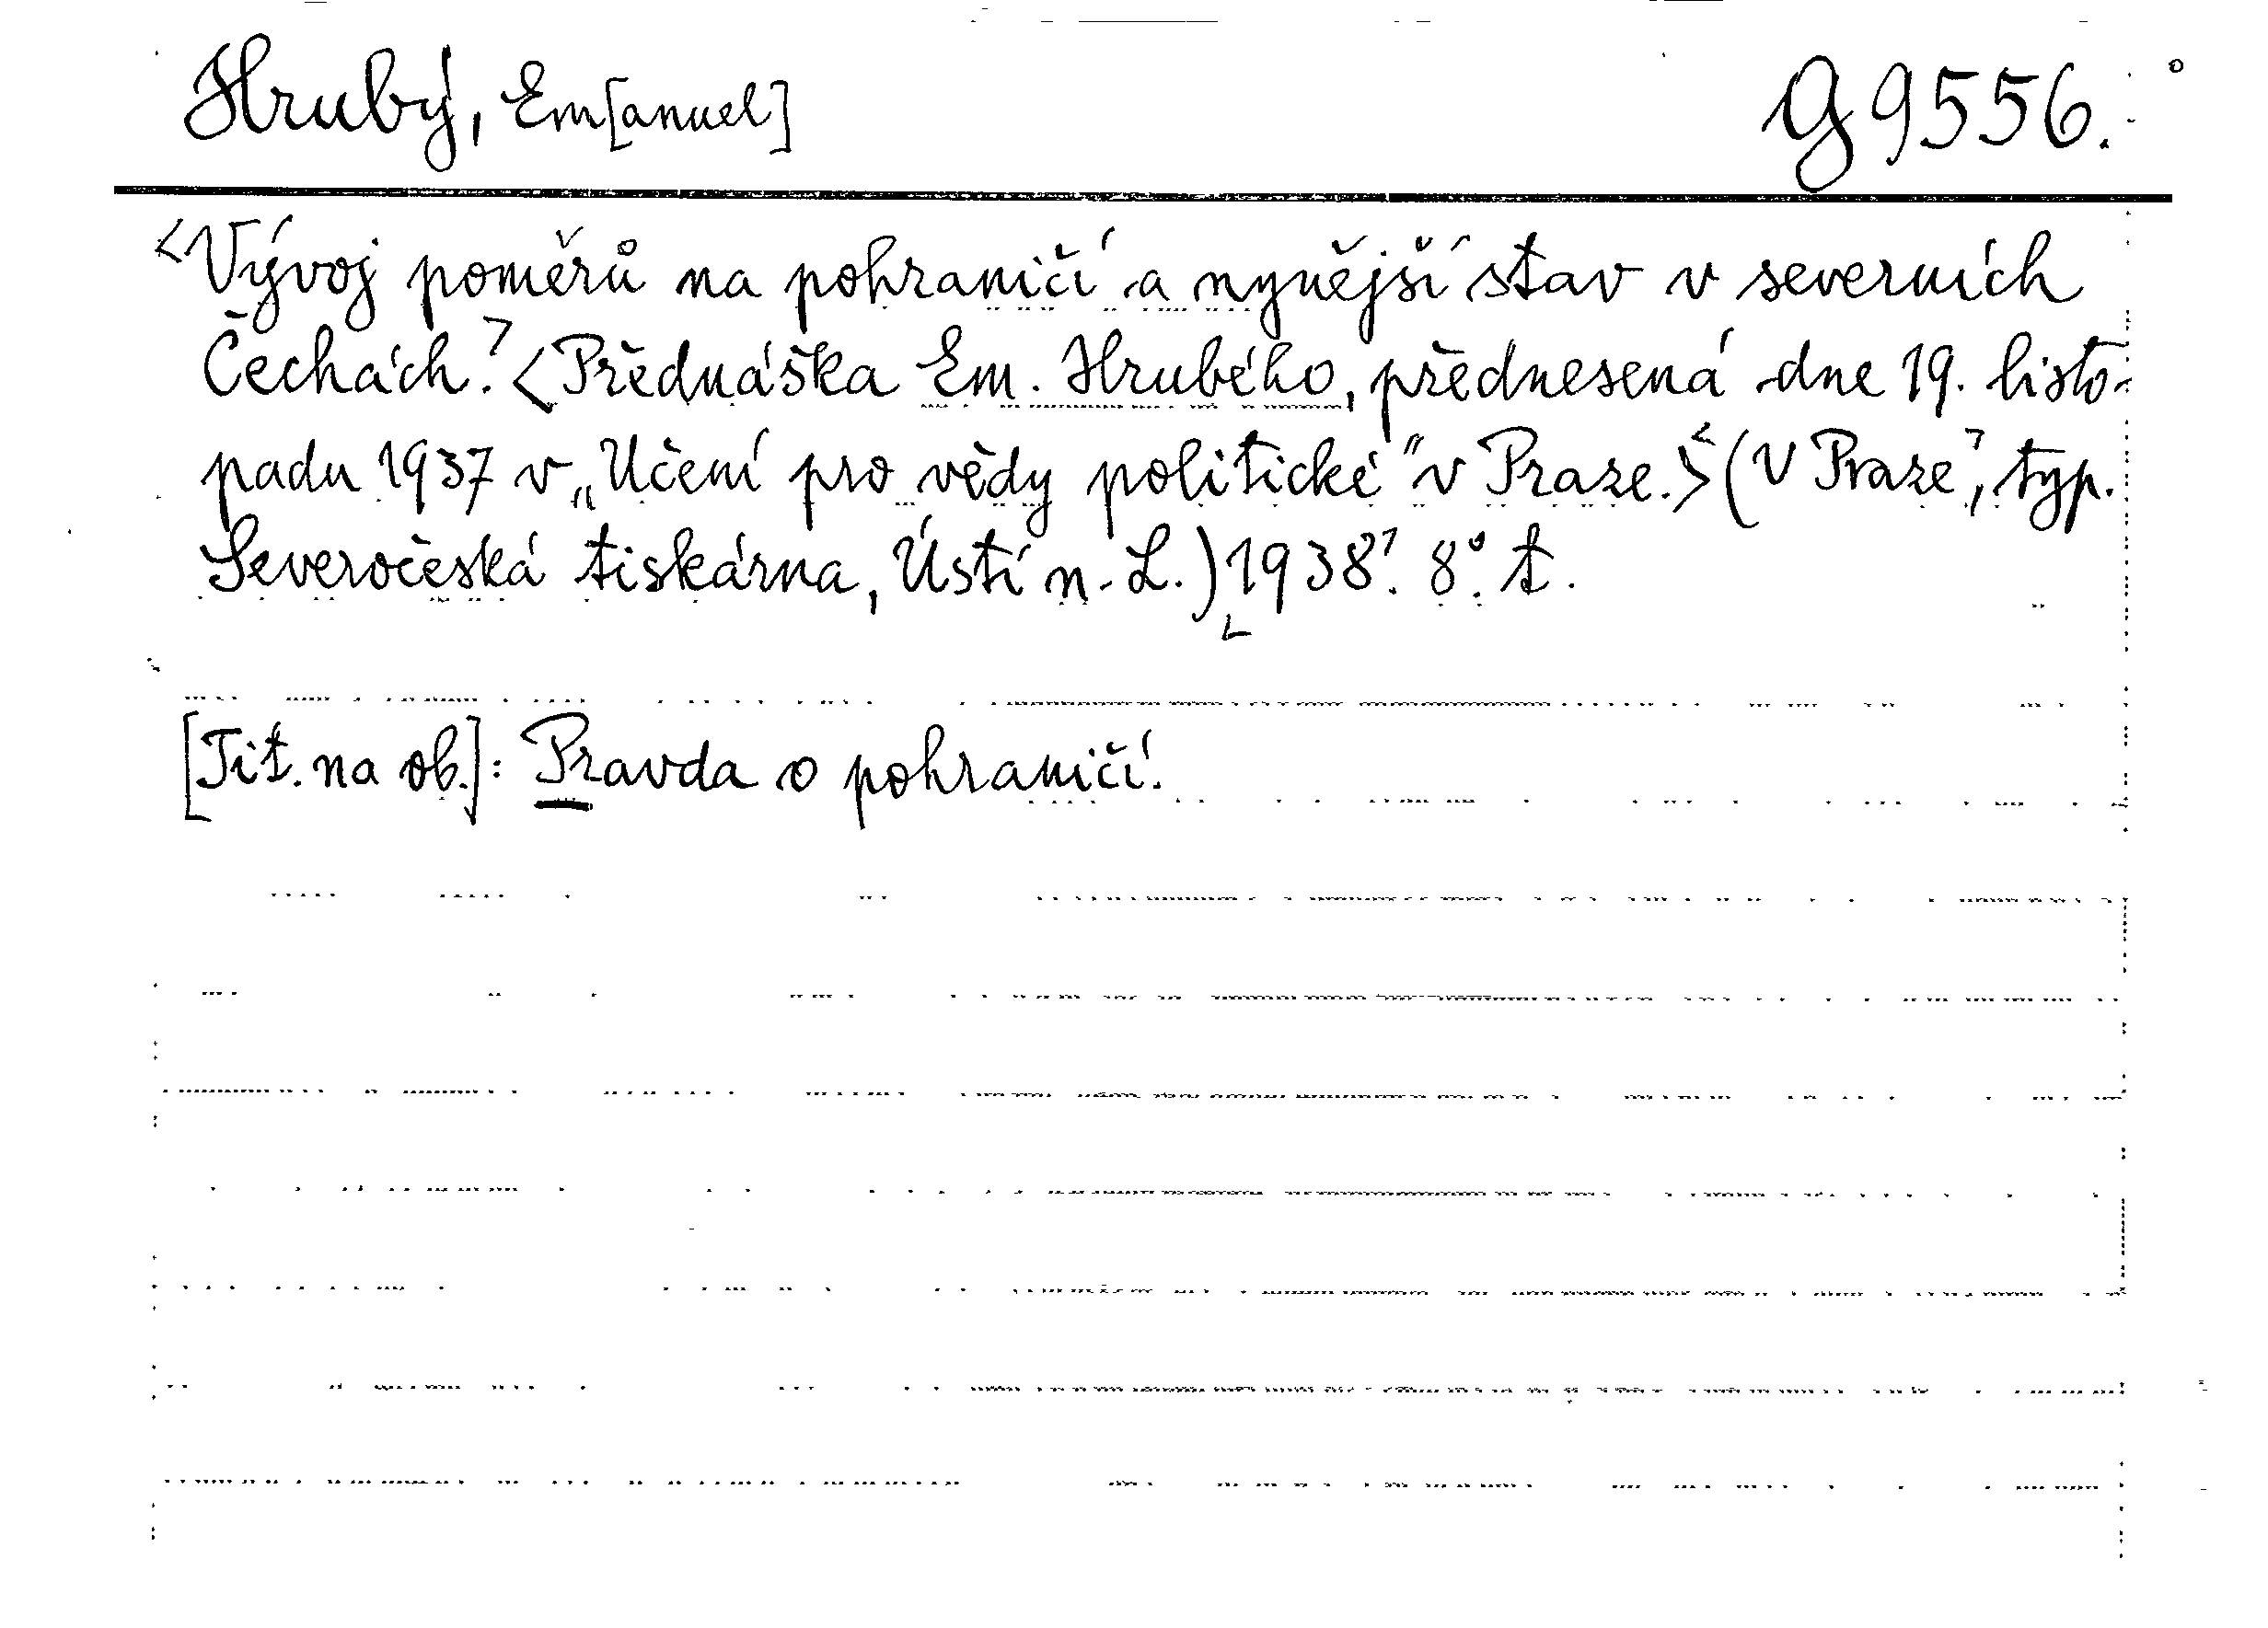 Hrubý, Em[anuel] G 9556.
<Vývoj poměrů na pohraničí a nynější stav v severních
Čechách.> <Přednáška Em. Hrubého, přednesená dne 19. listo-
padu 1937 v „Učení pro vědy politické" v Praze.> <(V Praze>, typ.
Severočeská tiskárna, Ústí n. L.) <1938>. 8°. t.
[Tit. na ob.]: Pravda o pohraničí.